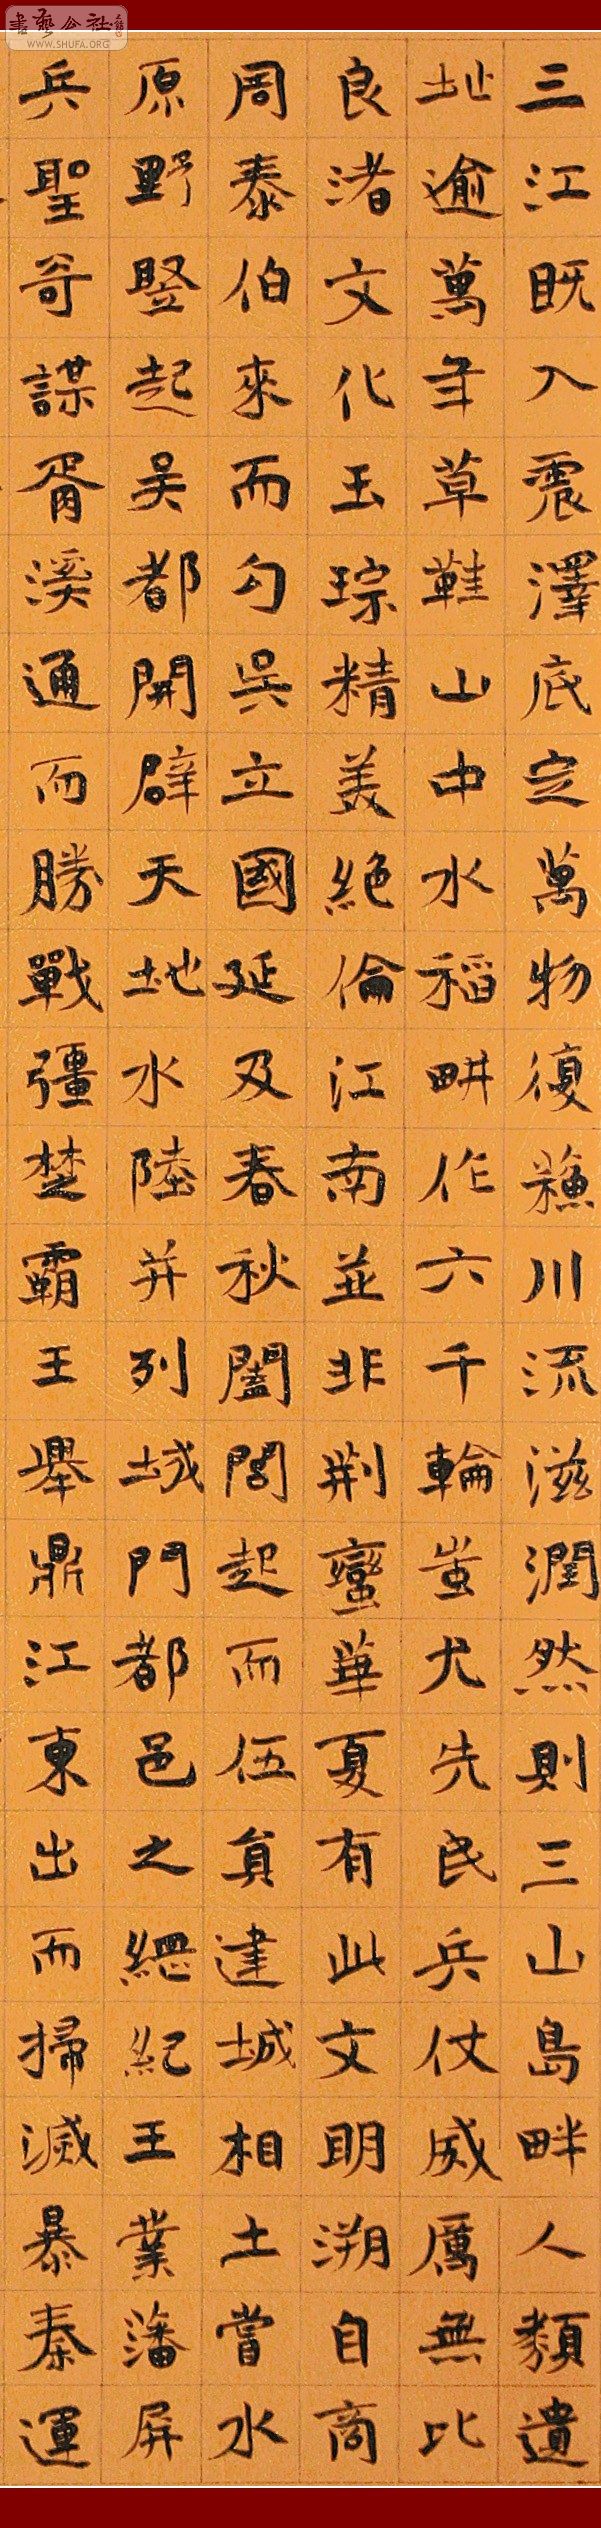 書藝公社
WWW.SHUFA.ORG
三江既入震澤底定萬物復蘇川流滋潤然則三山島畔人類遺
址逾萬年草鞋山中水稻畊作六千輪蚩尤先民兵仗威厲無比
良渚文化玉琮精美絶倫江南並非荆蠻華夏有此文明溯自商
周泰伯來而勾吳立國延及春秋闔閭起而伍員建城相土嘗水
原野竪起吴都開辟天地水陸并列城門都邑之繩紀王業藩屏
兵聖奇謀胥溪通而勝戰彊楚霸王舉鼎江東出而掃滅暴秦運